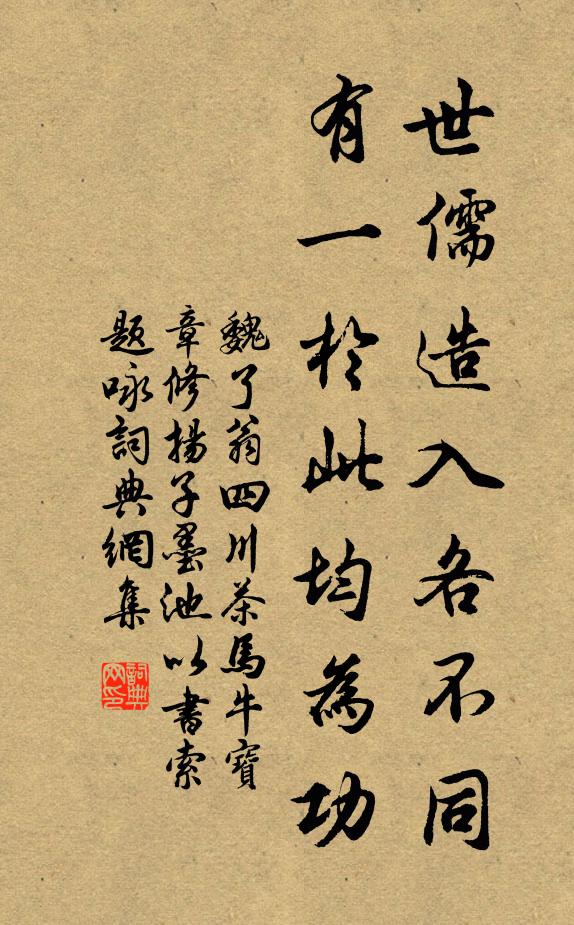 世儒造入各不同
有一於此均為功
魏了翁四川茶馬牛寶
章修揚子墨池以書索
題咏詞典網集
詞典網印